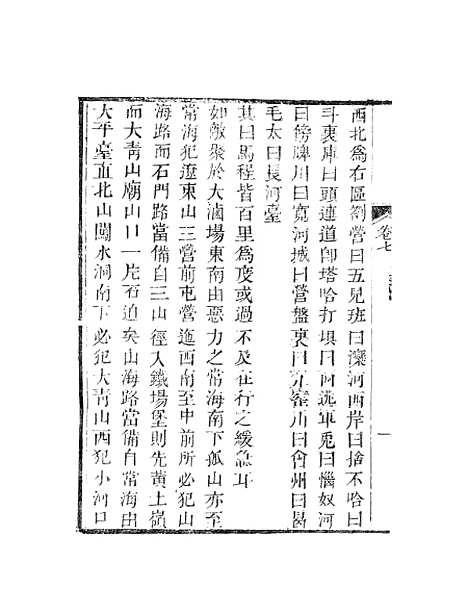 西北爲右區劄營曰五兒班曰灤河西岸曰捨不哈曰
斗裏庫曰頭連道卽塔哈打垻曰向逃軍兎曰惱奴河
曰傍牌川曰寬河城曰營盤裏曰 川曰會州曰曷
毛太曰長河臺
其曰馬程皆百里爲度或過不及在行之緩急耳
如敵聚於大滷場東南由惡力之常海南下孤山亦至
常海犯遼東山三營前屯營迤西南至中前所必犯山
海路而石門路當備自三山徑入鐵場堡則先黃土嶺
而大青山廟山口一片石迫矣山海路當備自常海出
大平臺直北山闊水洞南下必犯大青山西犯小河口
卷七